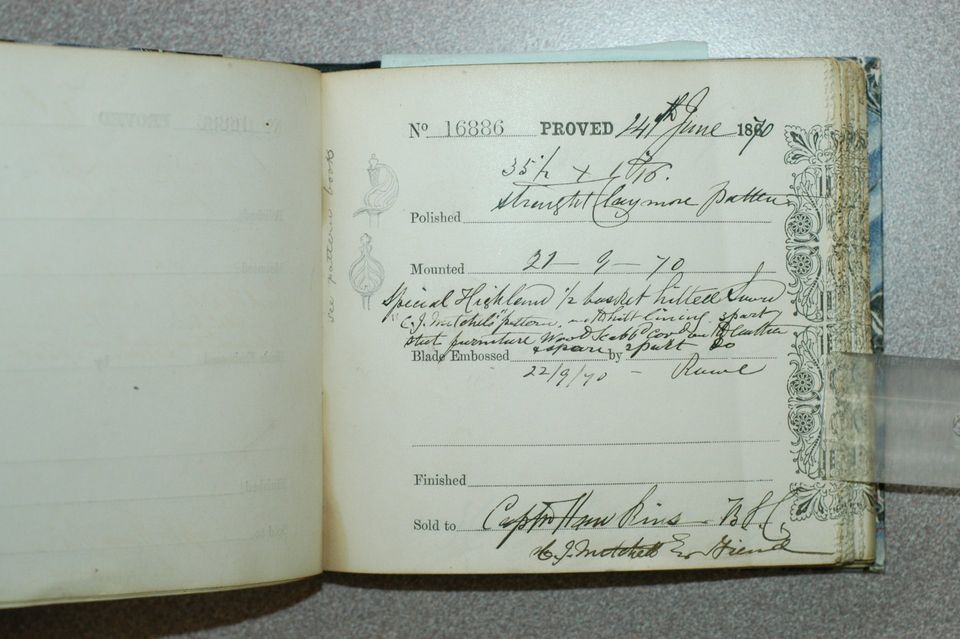 see pattern book
No 16886 PROVED 24th June 1870
35½ x 1
straight Claymore pattern
Polished
Mounted 21 - 9 - 70
Special Highland ½ basket hilted Sword
"C.J. Mitchel's" pattern, hilt lining 3 part
steel furniture Wood Scabbd leather
Blade Embossed & spare by 2 part do
22/9/70 - Rowe
Finished
Sold to Captn Hawkins - B.S.C.
C.J. Mitchell Friend